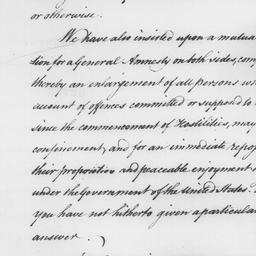 or otherwise.
We have also insisted upon a mutua
tion for a General Amnesty on both sides, com
thereby an enlargement of all persons wh
account of offences committed or suppos'd to
since the commencement of Hostilities, may
confinement, and for an immediate repos
their properties and peaceable enjoyment
under the Government of the United States.
you have not hitherto given a particular
answer.